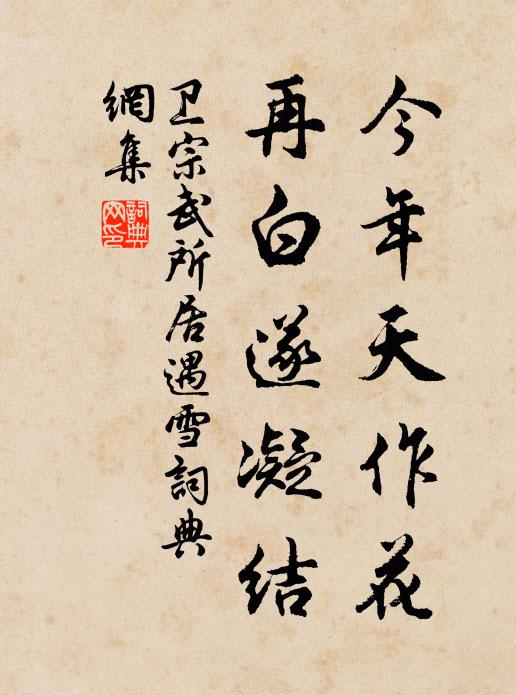 今年天作花
再白遂凝结
卫宗武所居遇雪詞典
網集
詞典
网印